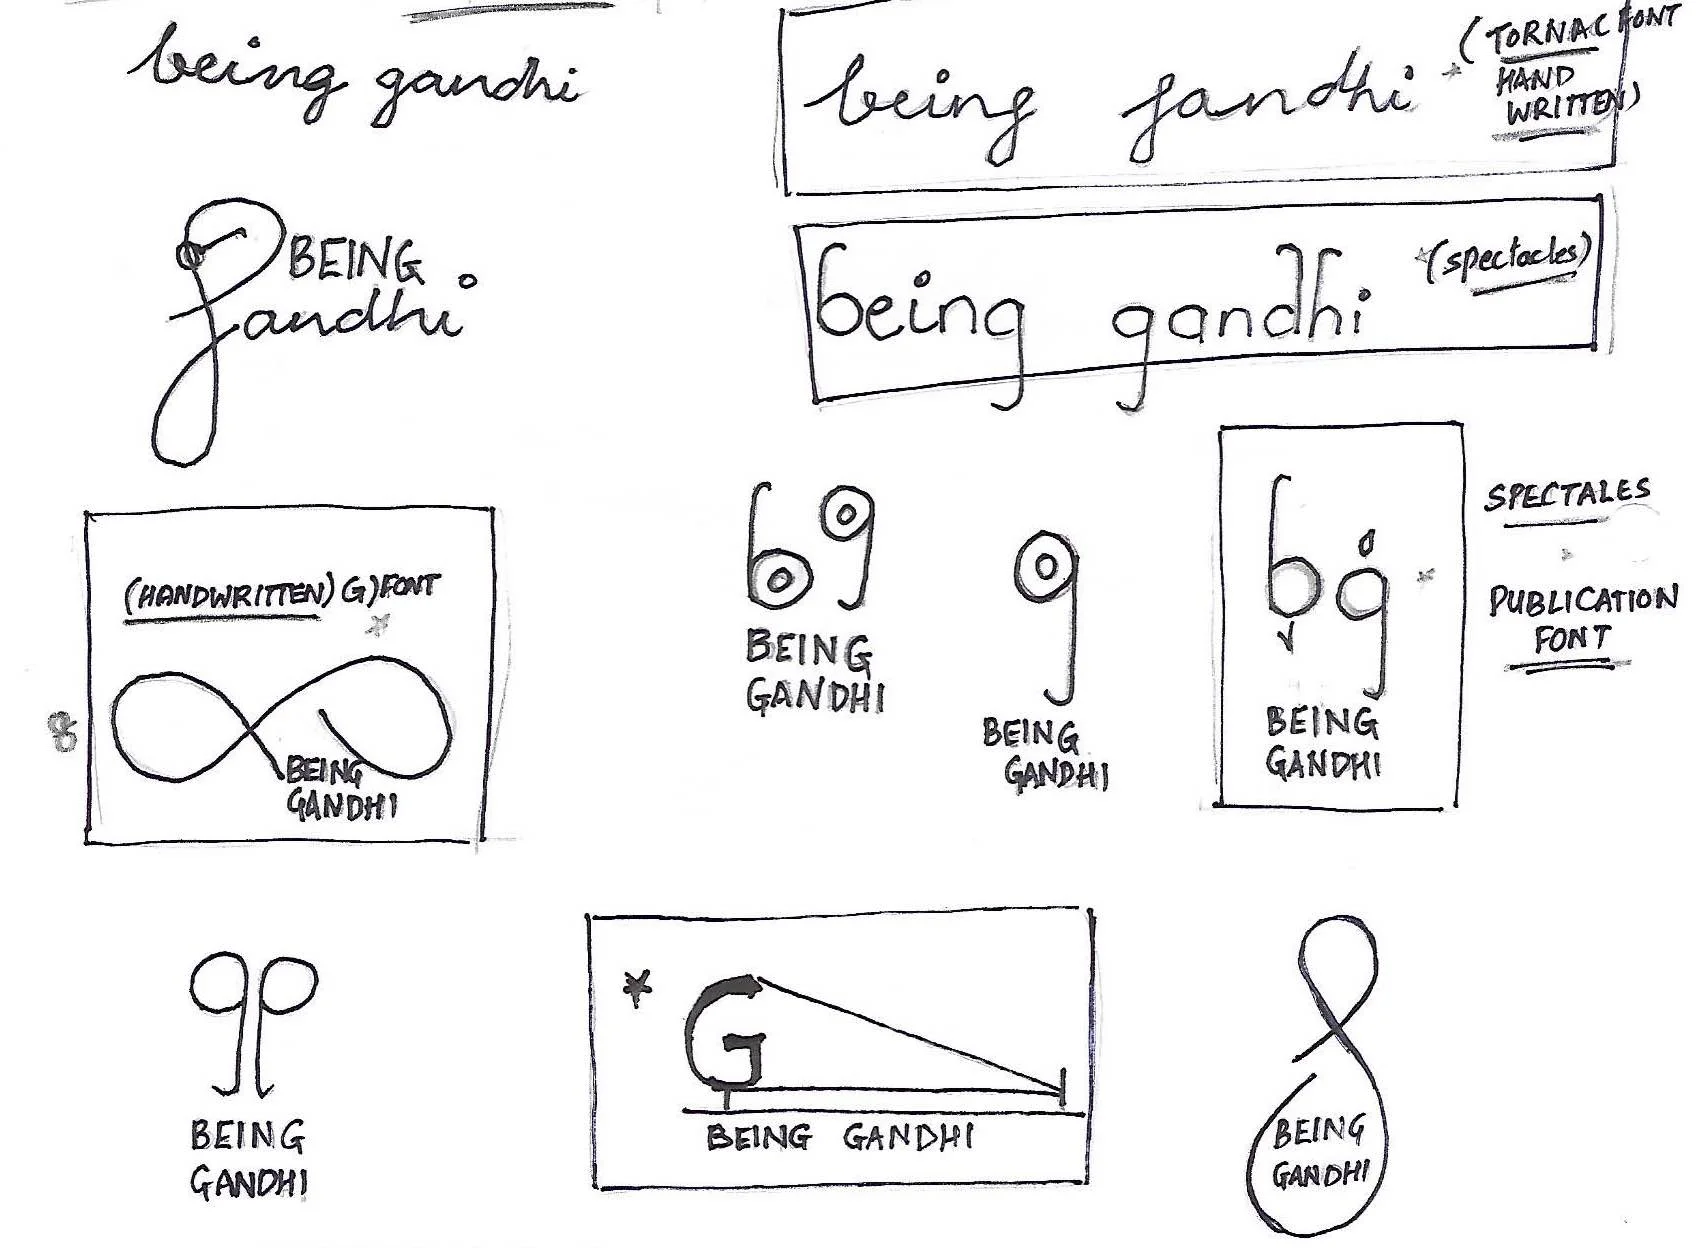 being gandhi
being gandhi
(TORNAC FONT
HAND
WRITTEN)
BEING
gandhi
being gandhi
(spectacles)
(HANDWRITTEN) G) FONT
BEING
GANDHI
bg
BEING
GANDHI
g
BEING
GANDHI
bg
BEING
GANDHI
SPECTALES
PUBLICATION
FONT
BEING
GANDHI
G
BEING GANDHI
BEING
GANDHI